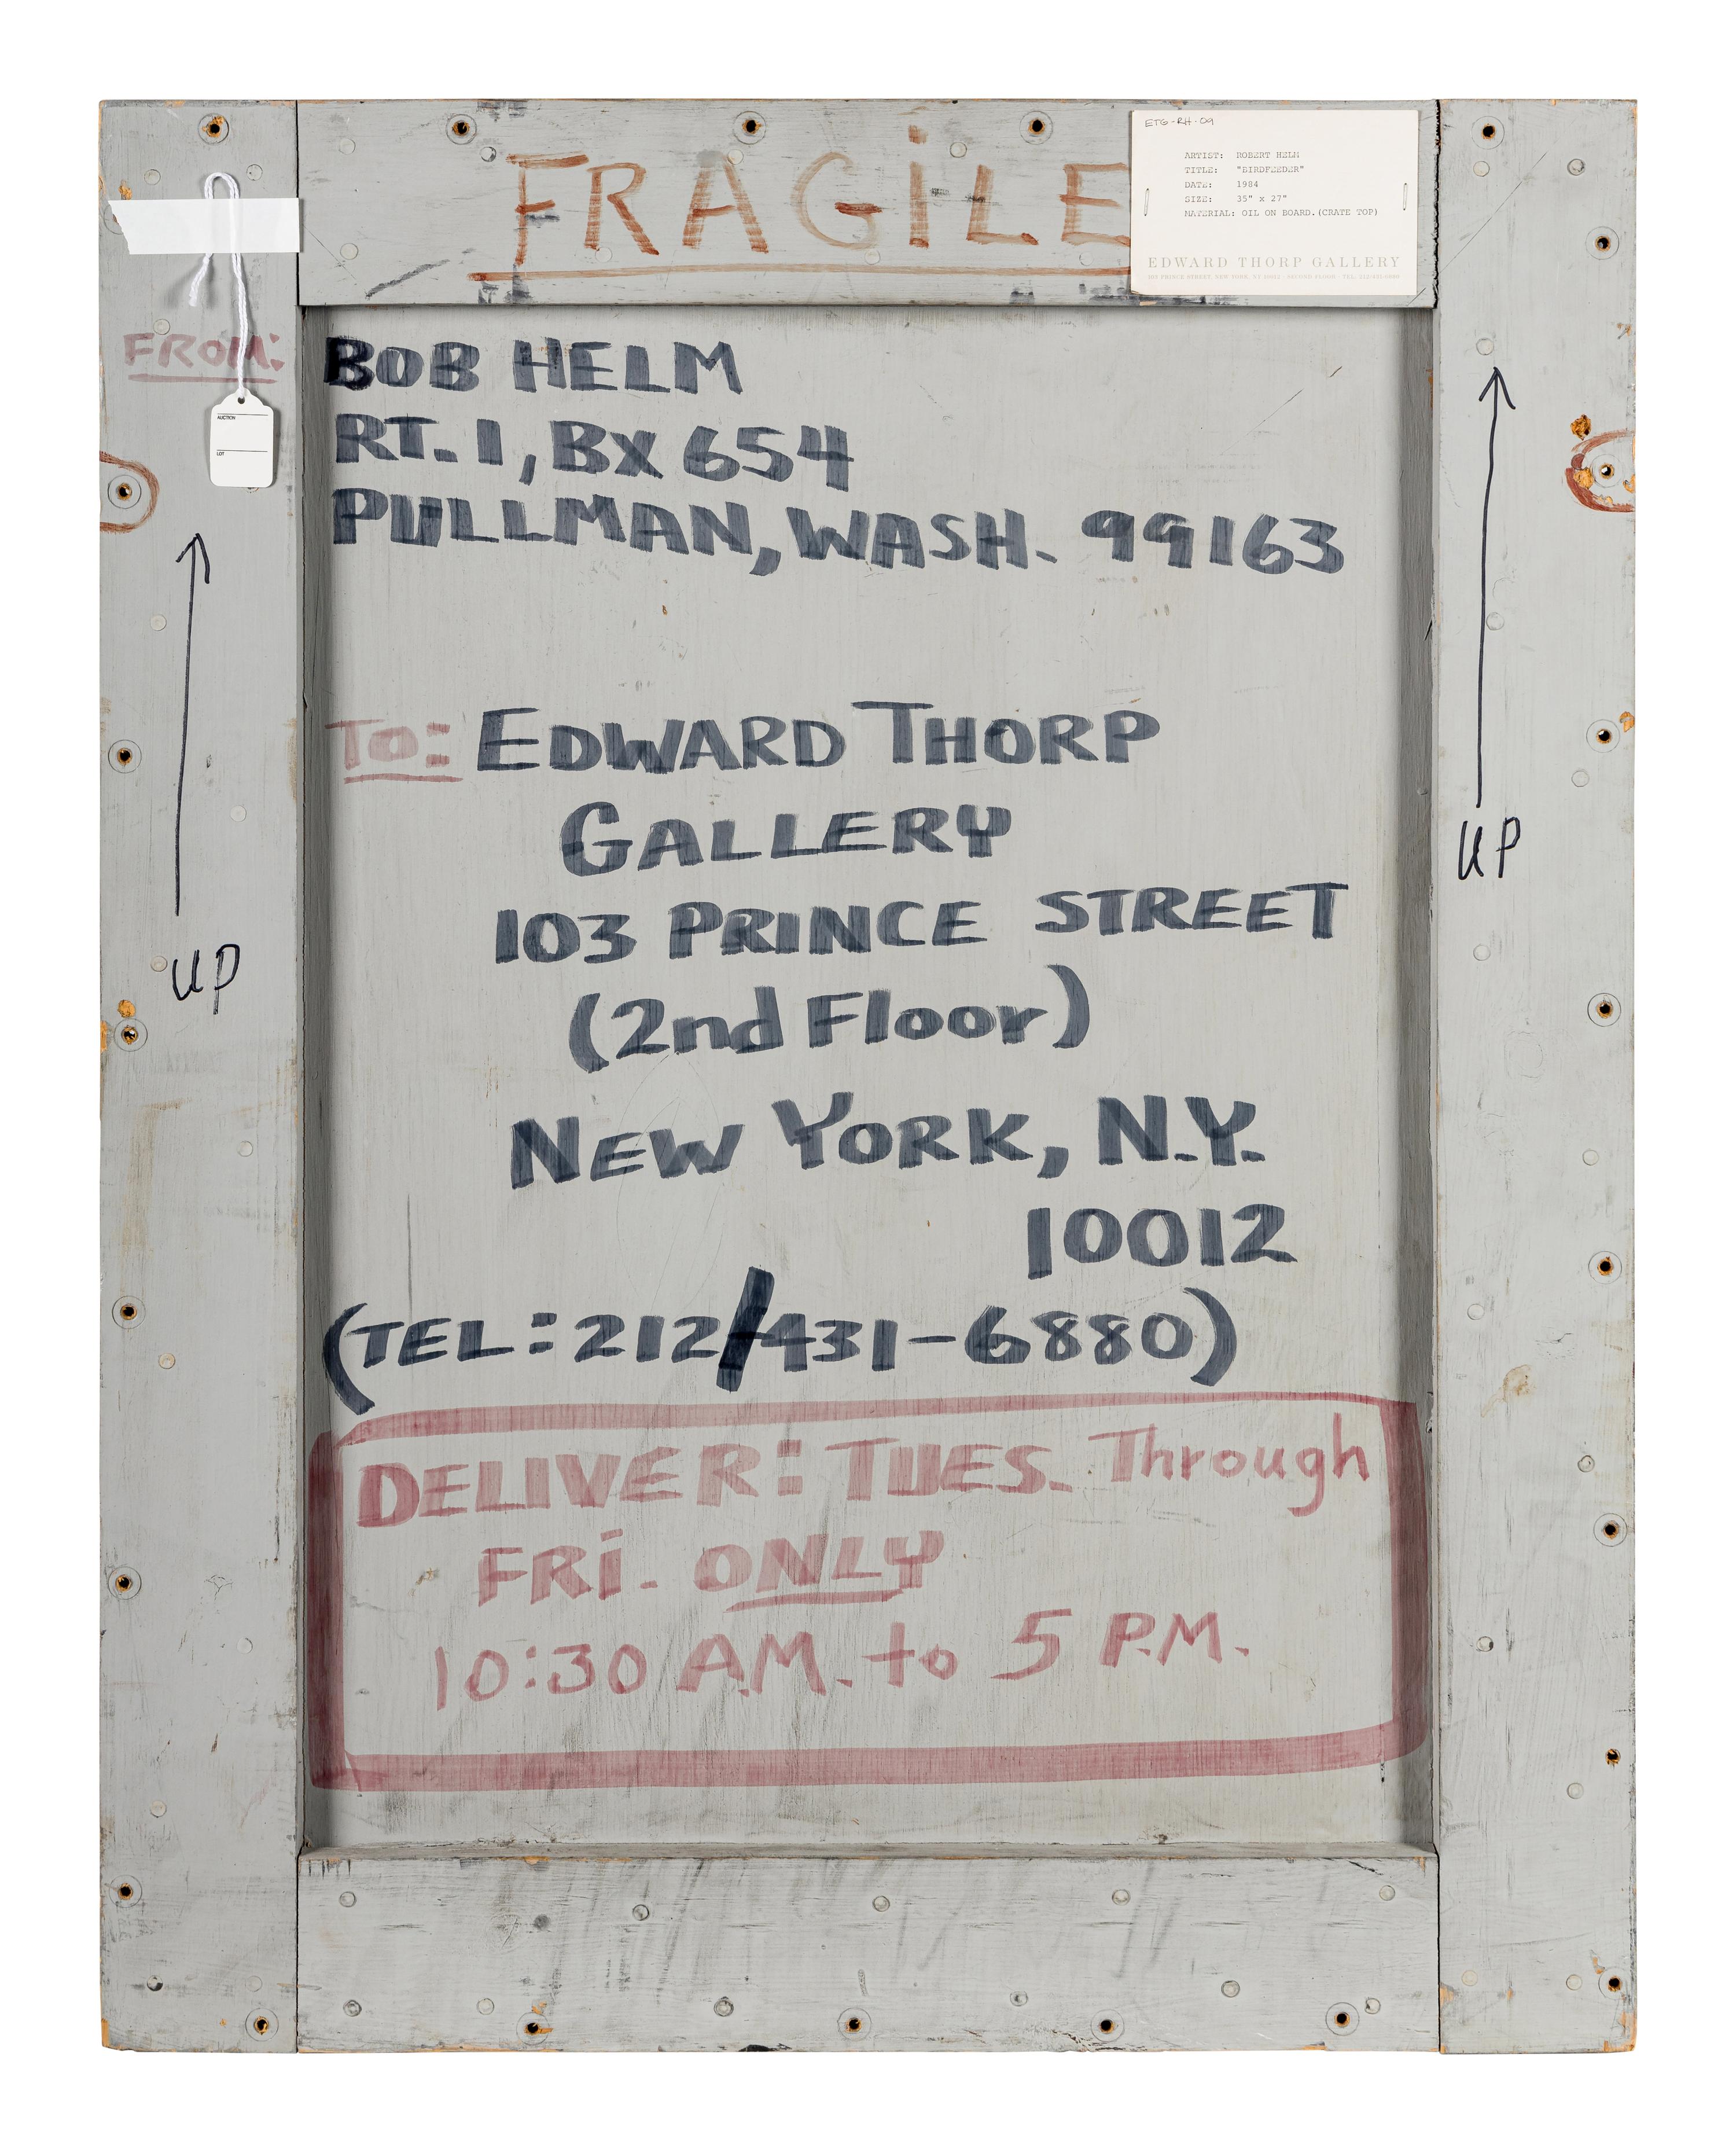 FRAGILE
ETG-RH-09
ARTIST: ROBERT HELM
TITLE: "BIRDFEEDER"
DATE: 1984
SIZE: 35" x 27"
MATERIAL: OIL ON BOARD.(CRATE TOP)
EDWARD THORP GALLERY
103 PRINCE STREET, NEW YORK, NY 10012 SECOND FLOOR TEL. 212/431-6880
FROM:
BOB HELM
RT. 1, BX 654
PULLMAN, WASH. 99163
AUCTION
LOT
TO: EDWARD THORP
GALLERY
103 PRINCE STREET
(2nd Floor)
NEW YORK, N.Y.
10012
(TEL: 212/431-6880)
UP
UP
DELIVER: TUES. Through
FRi. ONLY
10:30 A.M. to 5 P.M.